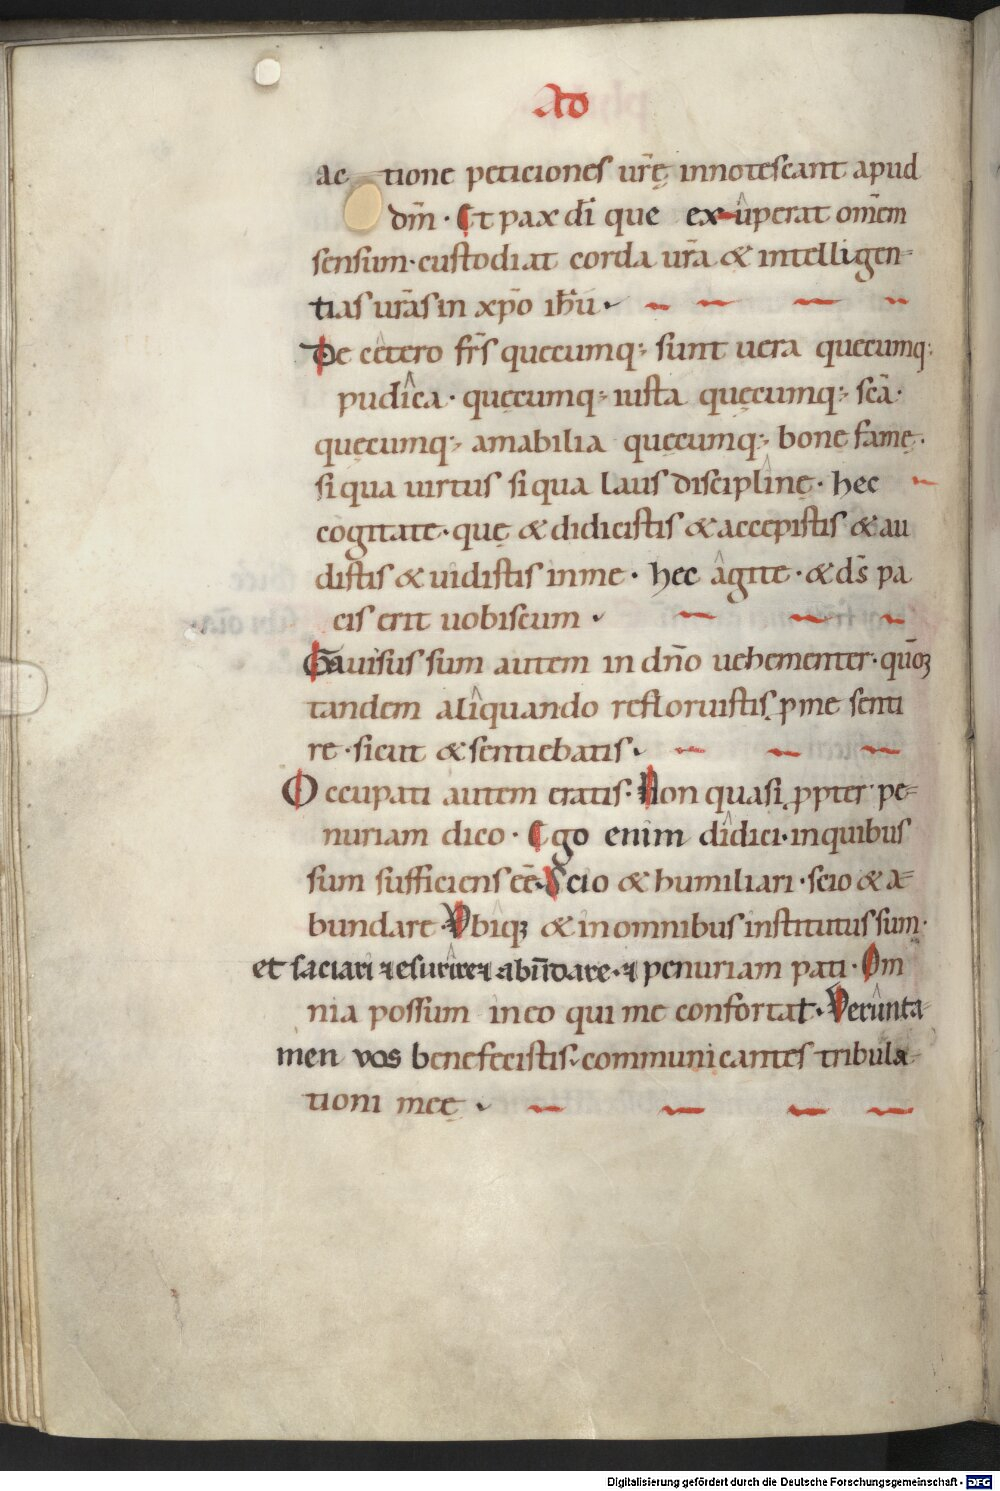 Ad
ac tione peticiones ur̄ę innotescant apud
dm̄ · Et pax di̅ que ex uperat om̄em
sensum · custodiat corda ur̄a & intelligen-
tias ur̄as in xp̄o ih̅u ·
De cetero fr̄s quecumq; sunt uera quecumq;
pudica · quęcumq; iusta quęcumq; sc̄a ·
quęcumq; amabilia quęcumq; bonę famę ·
si qua uirtus si qua laus disciplinę · hec
cogitate · quę & didicistis & accepistis & au
distis & uidistis in me · hec agite · & ds̄ pa
cis erit uobiscum ·
Gauisus sum autem in dn̄o uehementer · qūo
tandem aliquando refloruistis p me senti
re · sicut & sentiebatis ·
Occupati autem eratis · Non quasi ꝓpter pe-
nuriam dico · Ego enim didici · in quibus
sum sufficiens eē · Scio & humiliari · scio & a-
bundare · Vbiqꝫ & in omnibus institutus sum ·
et saciari ⁊ esurire ⁊ abūdare · ⁊ penuriam pati · Om
nia possum in eo qui me confortat · Verunta-
men vos benefecistis · communicantes tribula-
tioni meę ·
Digitalisierung gefördert durch die Deutsche Forschungsgemeinschaft - DFG